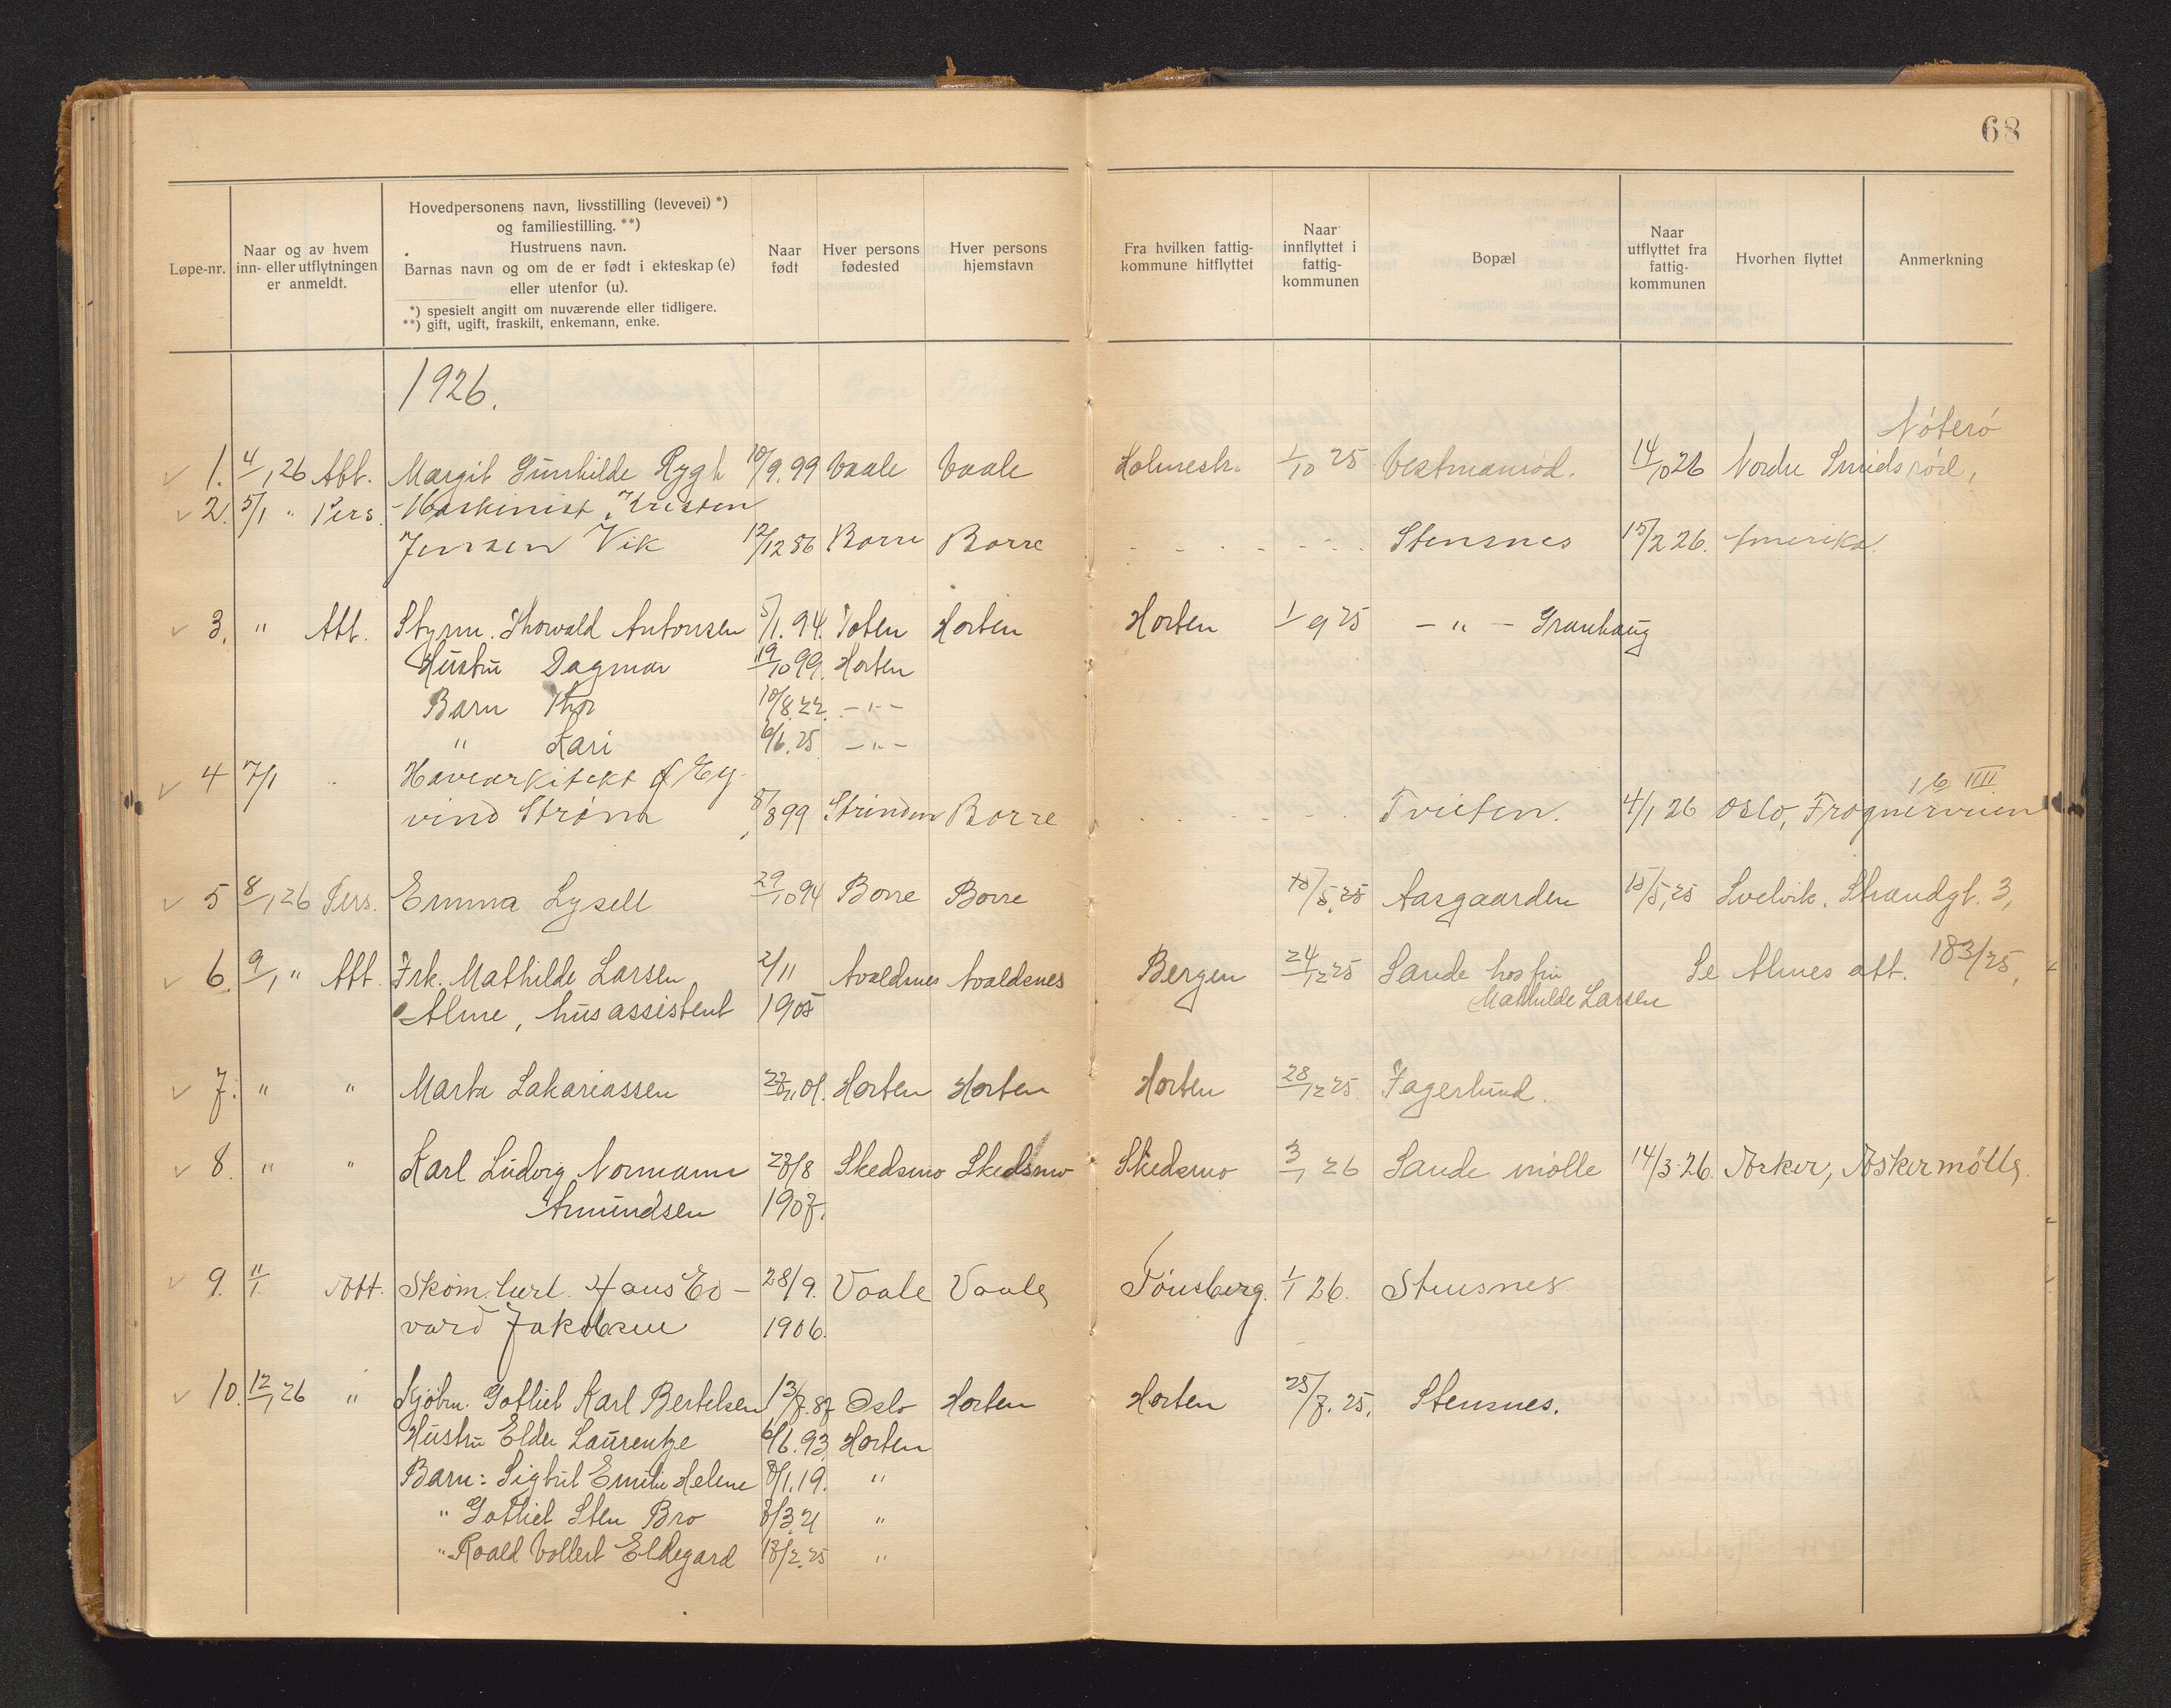 68
Løpe-nr.
Naar og av hvem
inn- eller utflytningen
er anmeldt.
Hovedpersonens navn, livsstilling (levevei) *)
og familiestilling. **)
Hustruens navn.
Barnas navn og om de er født i ekteskap (e)
eller utenfor (u).
*) spesielt angitt om nuværende eller tidligere.
**) gift, ugift, fraskilt, enkemann, enke.
Naar
født
Hver persons
fødested
Hver persons
hjemstavn
Fra hvilken fattig-
kommune hitflyttet
Naar
innflyttet i
fattig-
kommunen
Bopæl
Naar
utflyttet fra
fattig-
kommunen
Hvorhen flyttet
Anmerkning
1926.
Nöterö
1. 4/1 26 Att. Margit Gunhilde Rygh 10/9.99 Vaale Vaale Holmestr. 1/10 25 Vestmanrød. 14/10 26 Nordre Smidsrød,
2. 5/1 " Pers. Maskinist Kristen
Jensen Vik 12/12 86 Borre Borre - - - - - - Stensnes 15/2 26. Amerika.
3. " Att. Styrm. Thorvald Antonsen 5/1.94. Toten Horten Horten 1/9 25 - " - Granhaug
Hustru Dagmar 19/10 99. Horten
Barn Thor 10/8.22. - " -
" Kari 6/6.25 - " -
4 7/1 " Havearkitekt Ey-
vind Strøm 8/8 99 Strinden Borre - - - - - - Tveiten. 4/1 26 Oslo, Frognerveien
16 IIII
5 8/1 26 Pers. Emma Lysell 29/10 94 Borre Borre 10/5,25 Aasgaarden 10/5,25 Svelvik. Strandgt. 3,
6. 9/1 " Att. Frk. Mathilde Larsen 2/11 Avaldsnes Avaldsnes Bergen 24/12 25 Sande hos fru Se Almes att. 183/25,
Alme, husassistent 1905 Mathilde Larsen
7. " " Marta Zakariassen 22/11 01. Horten Horten Horten 28/12 25. Fagerlund.
8. " " Karl Ludvig Normann 28/8 Skedsmo Skedsmo Skedsmo 3/1 26 Sande mölle 14/3 26. Asker, Askermölle.
Amundsen 1907.
9. 11/1. Att. Skom. lærl. Hans Ed- 28/9. Vaale Vaale Tønsberg. 1/1 26. Stensnes
vard Jakobsen 1906.
10. 12/1 26 " Kjöbm. Gotlieb Karl Bertelsen 13/7.87 Oslo Horten Horten 25/7.25. Stensnes.
Hustru Elder Laurentze 6/6.93. Horten
Barn: Sigbul Emilie Helene 8/1.19. "
" Gotlieb Sten Bro 8/3.21 "
" Roald Vollert Eldegard 18/2.25 "